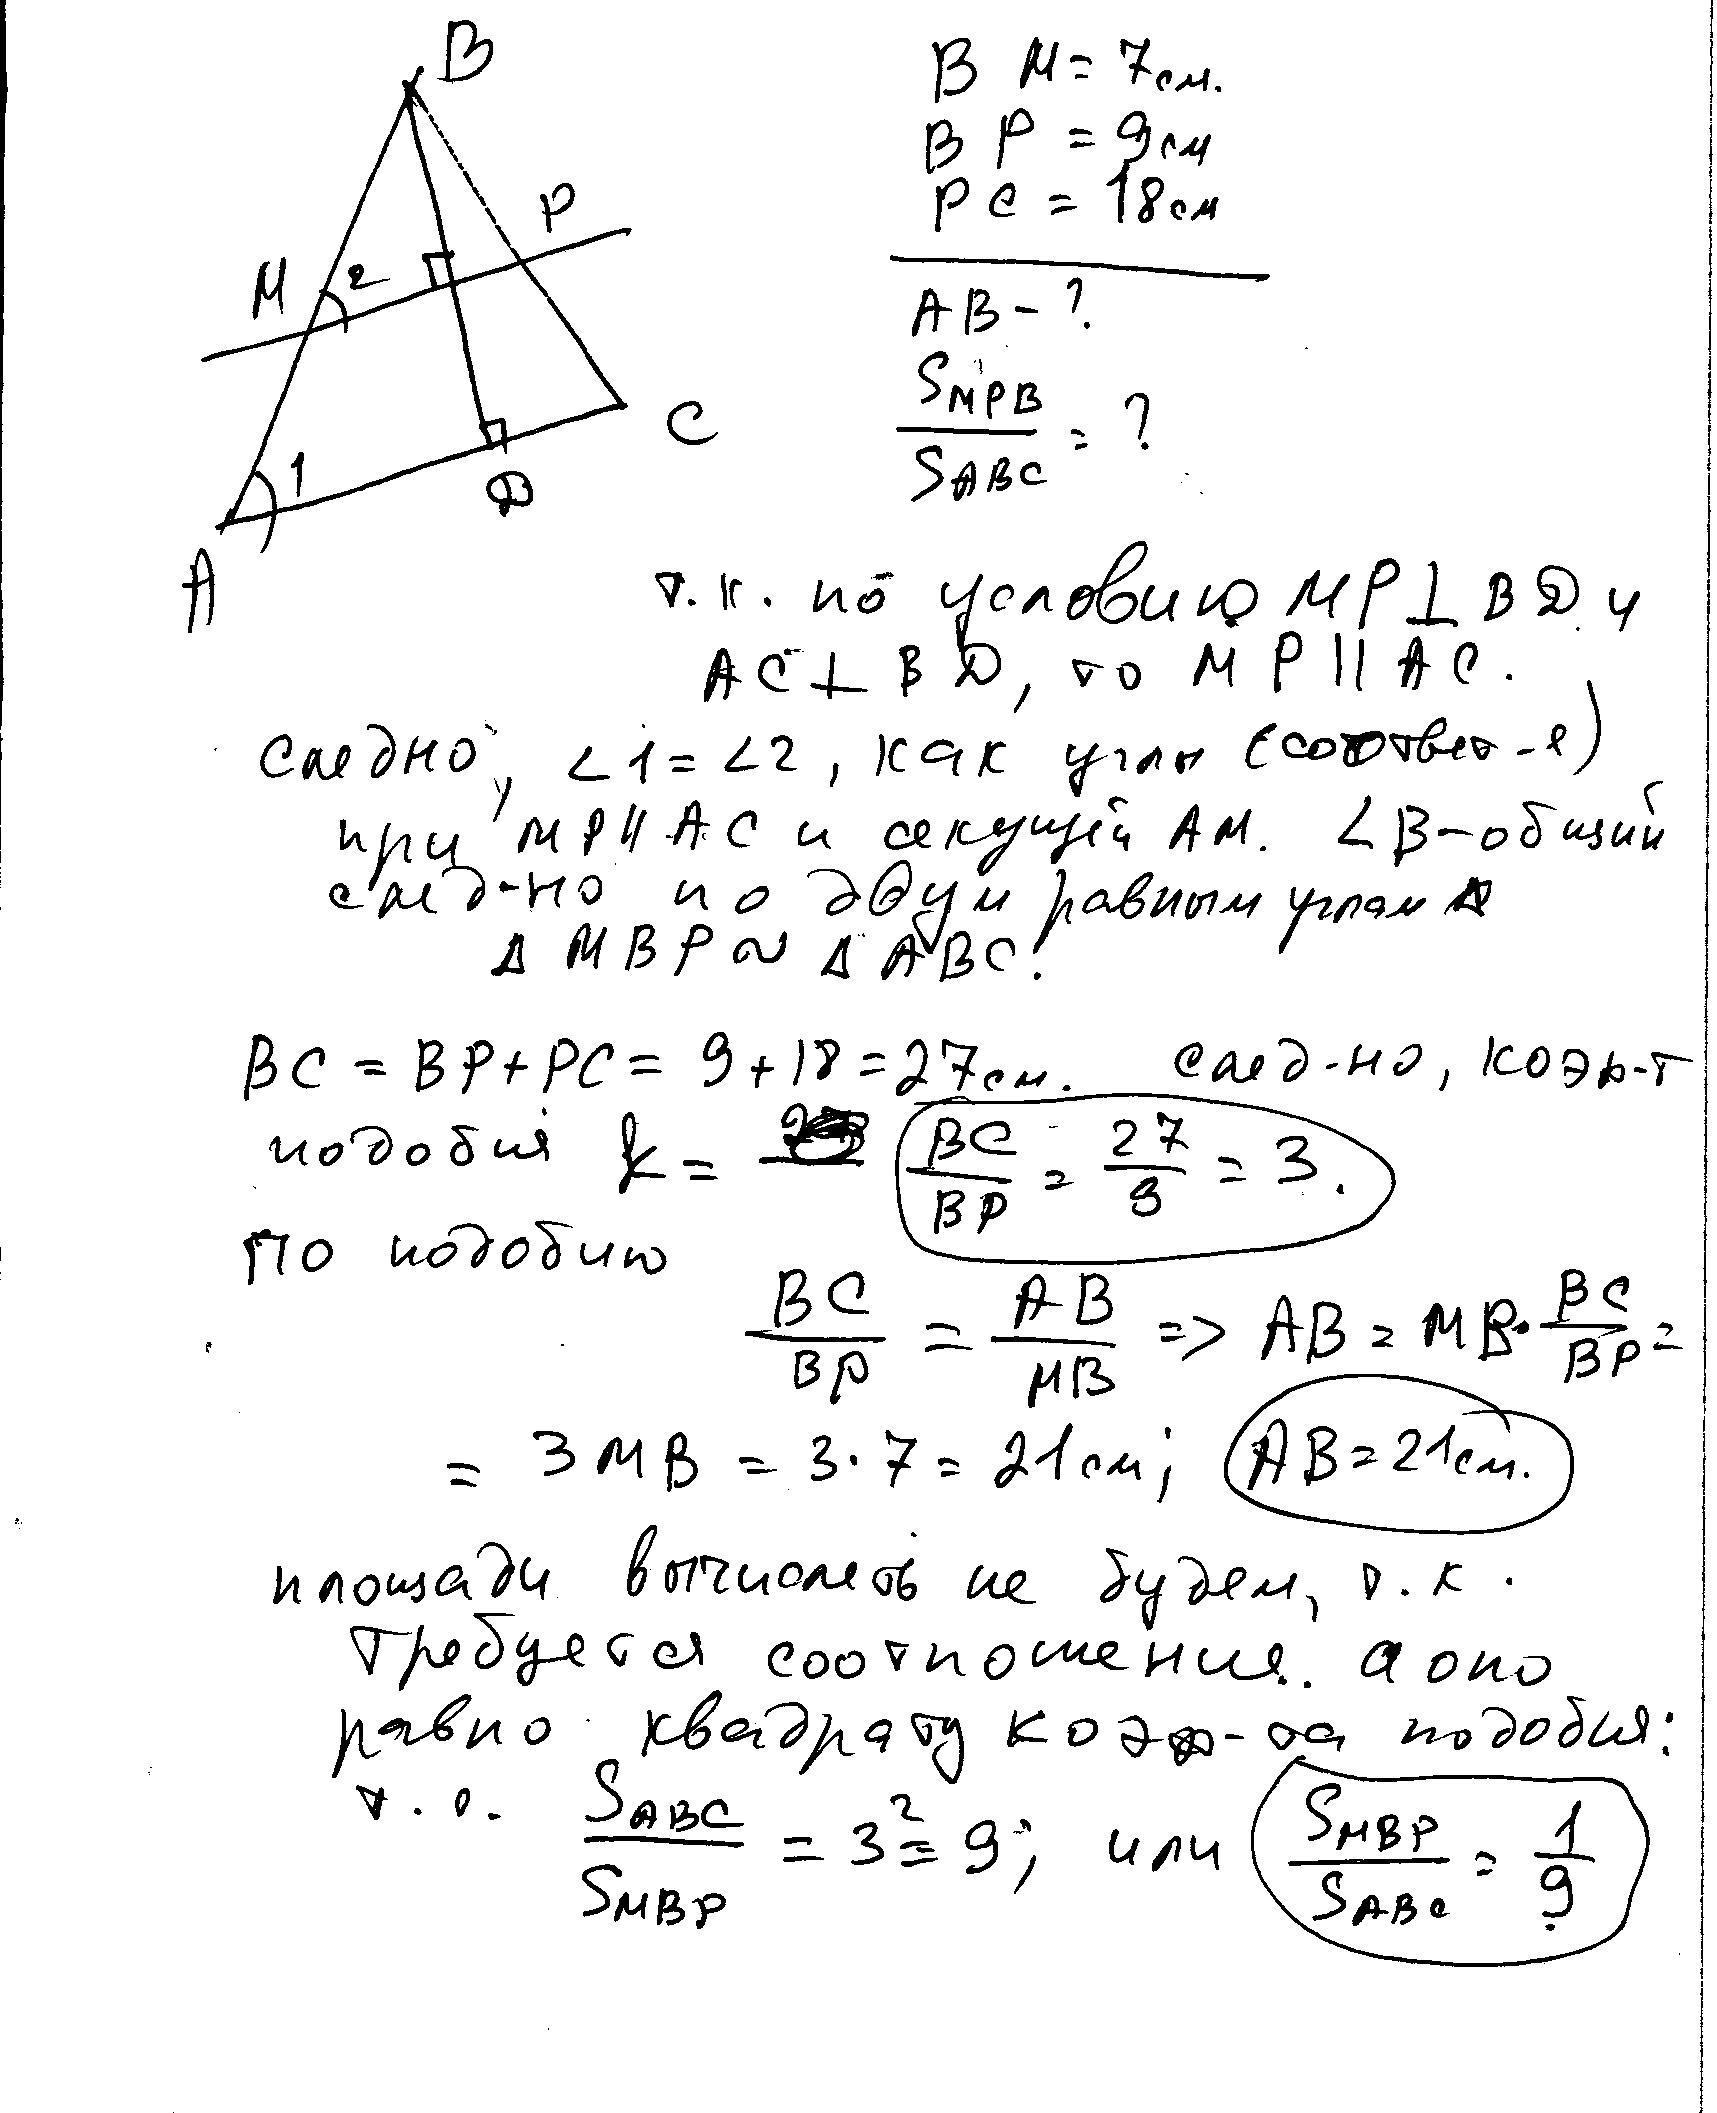 B
M
2
P
1
A
D
C
BM = 7см.
BP = 9см
PC = 18см
AB - ?
S_MPB / S_ABC = ?
т.к. по условию MP⊥BD и
AC⊥BD, то MP||AC.
следно, ∠1=∠2, как углы (соответ-е)
при MP||AC и секущей AM. ∠B-общий
след-но по двум равным углам Δ
Δ MBP ~ Δ ABC.
BC = BP+PC = 9+18=27см. след-но, коэф-т
подобия k = BC/BP = 27/9 = 3.
По подобию
BC/BP = AB/MB => AB = MB·BC/BP =
= 3MB = 3·7 = 21см; AB=21см.
площади вычислять не будем, т.к.
требуется соотношения. а оно
равно квадрату коэф-та подобия:
т.о. S_ABC/S_MBP = 3² = 9; или S_MBP/S_ABC = 1/9